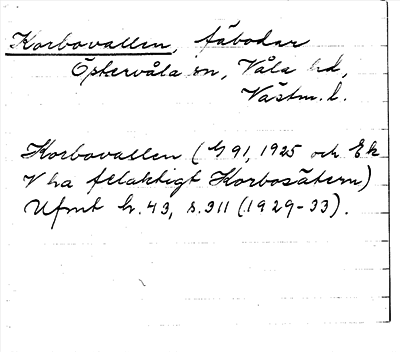 Korbovallen, fäbodar
Östervåla sn, Våla hd,
Västm. l.
Korbovallen (G 91, 1925 och Ek
V ha felaktigt Korbosätern)
Ufmt h. 43, s. 311 (1929-33).